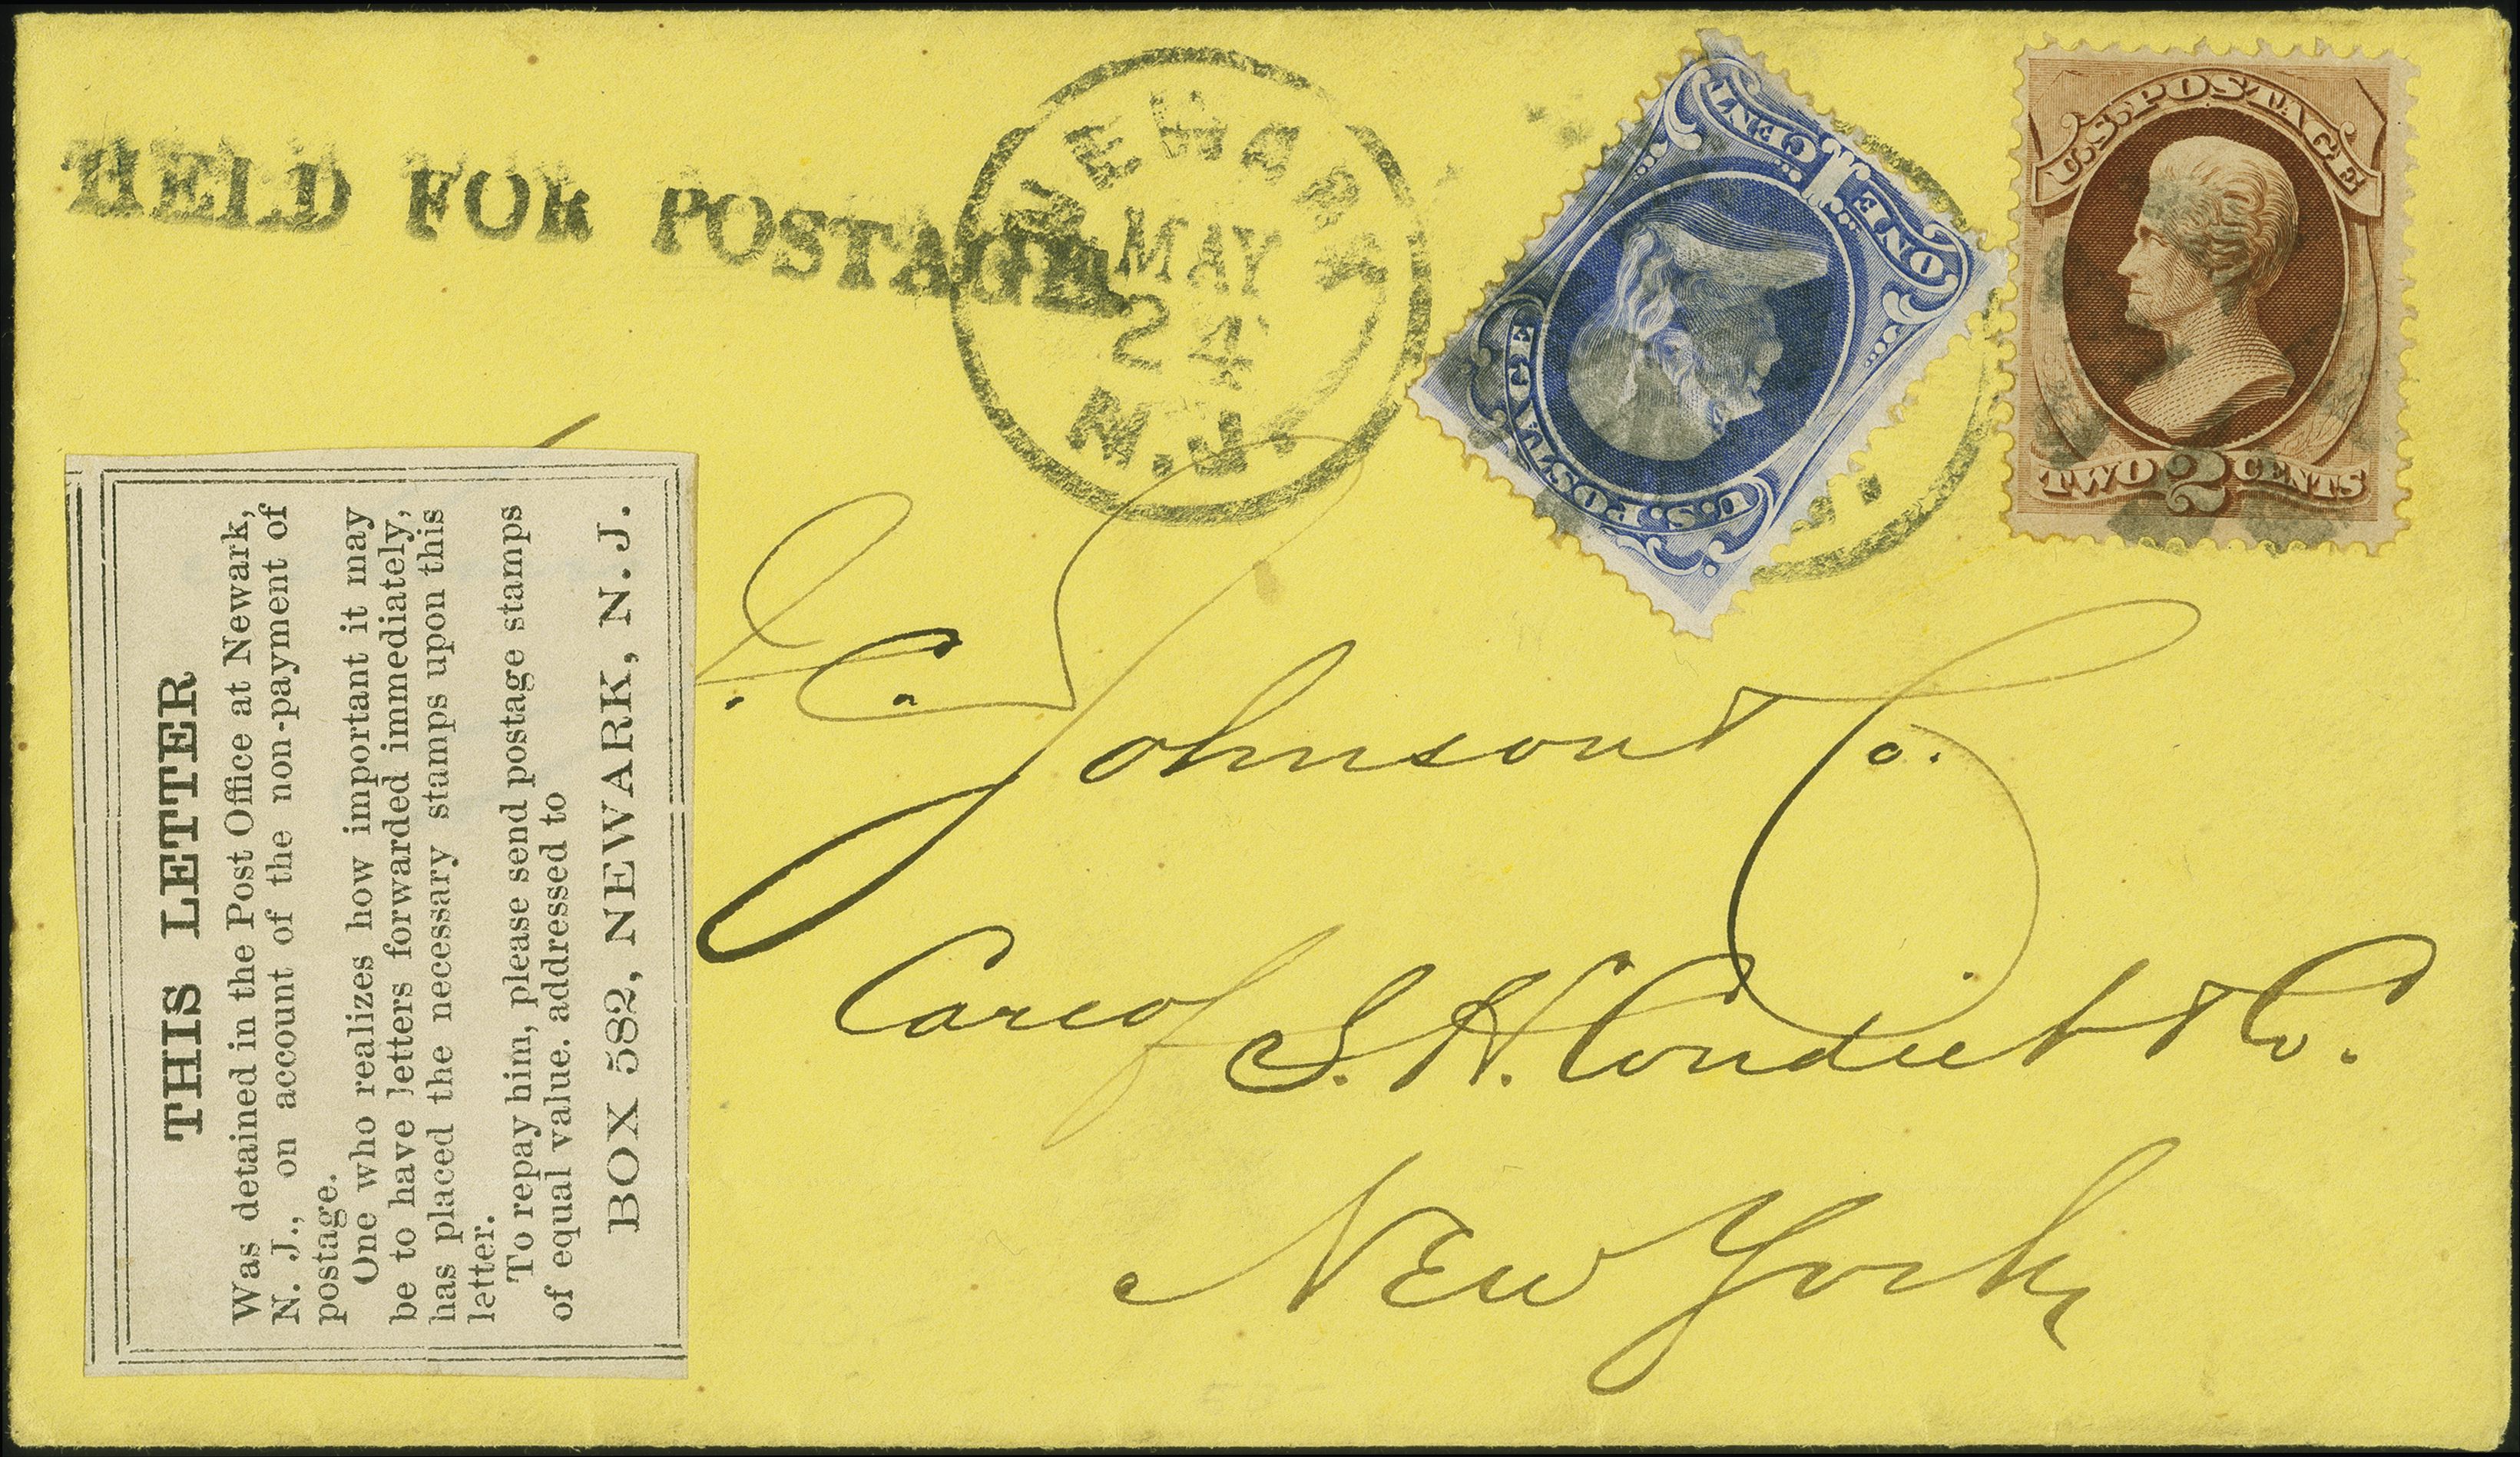 HELD FOR POSTAGE.
NEWARK
MAY
24
N.J.
U.S. POSTAGE
ONE 1 CENT
U.S. POSTAGE
TWO 2 CENTS
THIS LETTER
Was detained in the Post Office at Newark,
N. J., on account of the non-payment of
postage.
One who realizes how important it may
be to have letters forwarded immediately,
has placed the necessary stamps upon this
letter.
To repay him, please send postage stamps
of equal value. addressed to
BOX 582, NEWARK, N. J.
C. Johnson & Co.
Care of S. H. Condict & Co.
New York